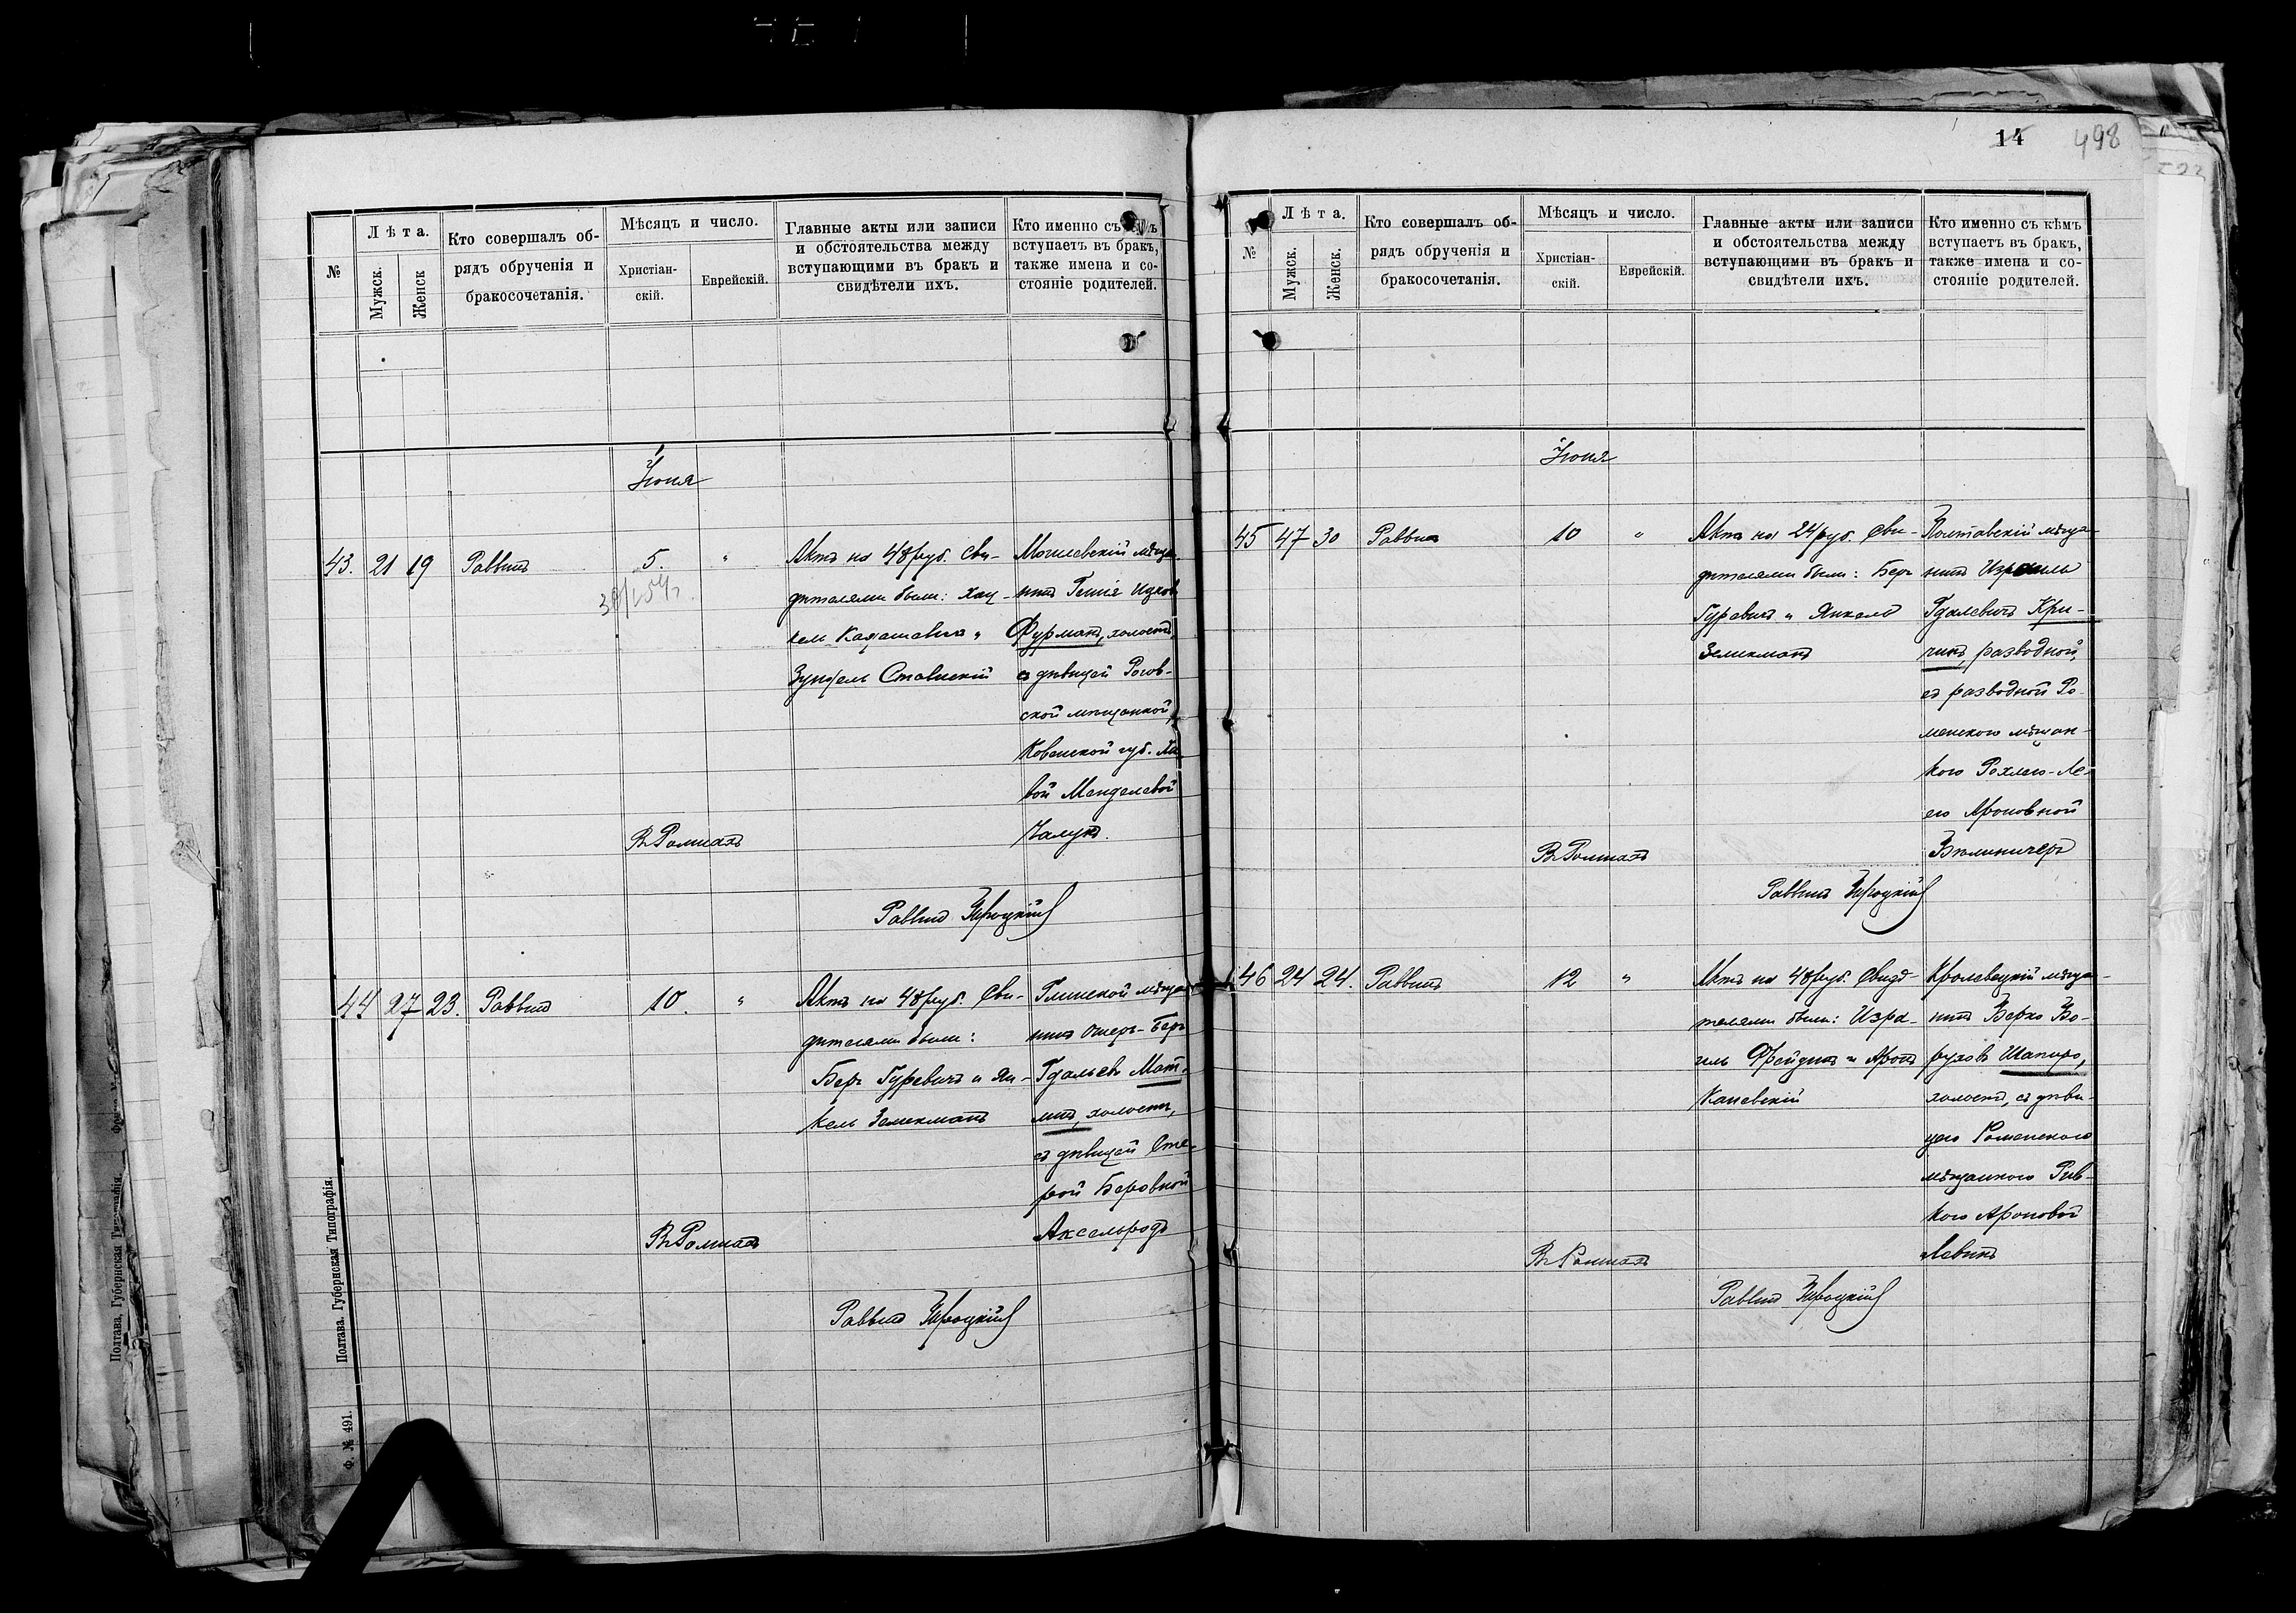 №
Лѣта.
Мужск.
Женск
Кто совершалъ об-
рядъ обрученія и
бракосочетанія.
Мѣсяцъ и число.
Христіан-
скій.
Еврейскій.
Главные акты или записи
и обстоятельства между
вступающими въ бракъ и
свидѣтели ихъ.
Кто именно съ
вступаетъ въ бракъ,
также имена и со-
стояніе родителей.
Іюня
43. 21 19 Раввинъ 5. "
Актъ на 48 руб. Сви-
дителями были: Хац-
кель и
Зундель Ставискій
Могилевскій мѣща-
нинъ Ицков
Фурманъ, холостъ,
съ дѣвицей Росов-
ской мѣщанкой,
Ковенской губ. Ха
вой Менделевой
Чалукъ.
Въ Ромнахъ
Раввинъ
44 27 23. Раввинъ 10. "
Актъ на 48 руб. Сви-
дителями были:
Беръ Гуревичъ и Ян-
кель Зеликманъ
Глинской мѣща-
нинъ Ошеръ-Беръ
Гдальевъ Мат-
линъ, холостъ,
съ дѣвицей Сте-
рой Беровной
Аксельродъ
Въ Ромнахъ
Раввинъ
Полтава. Губернская Типографія.
Ф. № 491.
14 498
№
Лѣта.
Мужск.
Женск.
Кто совершалъ об-
рядъ обрученія и
бракосочетанія.
Мѣсяцъ и число.
Христіан-
скій.
Еврейскій.
Главные акты или записи
и обстоятельства между
вступающими въ бракъ и
свидѣтели ихъ.
Кто именно съ кѣмъ
вступаетъ въ бракъ,
также имена и со-
стояніе родителей.
Іюня
45 47 30 Раввинъ 10 "
Актъ на 24 руб. Сви-
дителями были: Беръ
Гуревичъ и Янкель
Зеликманъ
Полтавскій мѣща-
нинъ Израиль
Гдалевичъ Кри-
чикъ, разводной,
съ разводной Ро-
менскою мѣщан-
кою Рохлею-Ле-
ею Ароновной
Виленичеръ
Въ Ромнахъ
Раввинъ
46 24 24. Раввинъ 12 "
Актъ на 48 руб. Свид-
телями были: Изра-
иль Фрейдинъ и Аронъ
Каневскій
Кролевецкій мѣща-
нинъ Берко Бо-
руховъ Шапиро,
холостъ, съ дѣви-
цею Роменскою
мѣщанкою Рив-
кою Ароновой
Левинъ
Въ Ромнахъ
Раввинъ